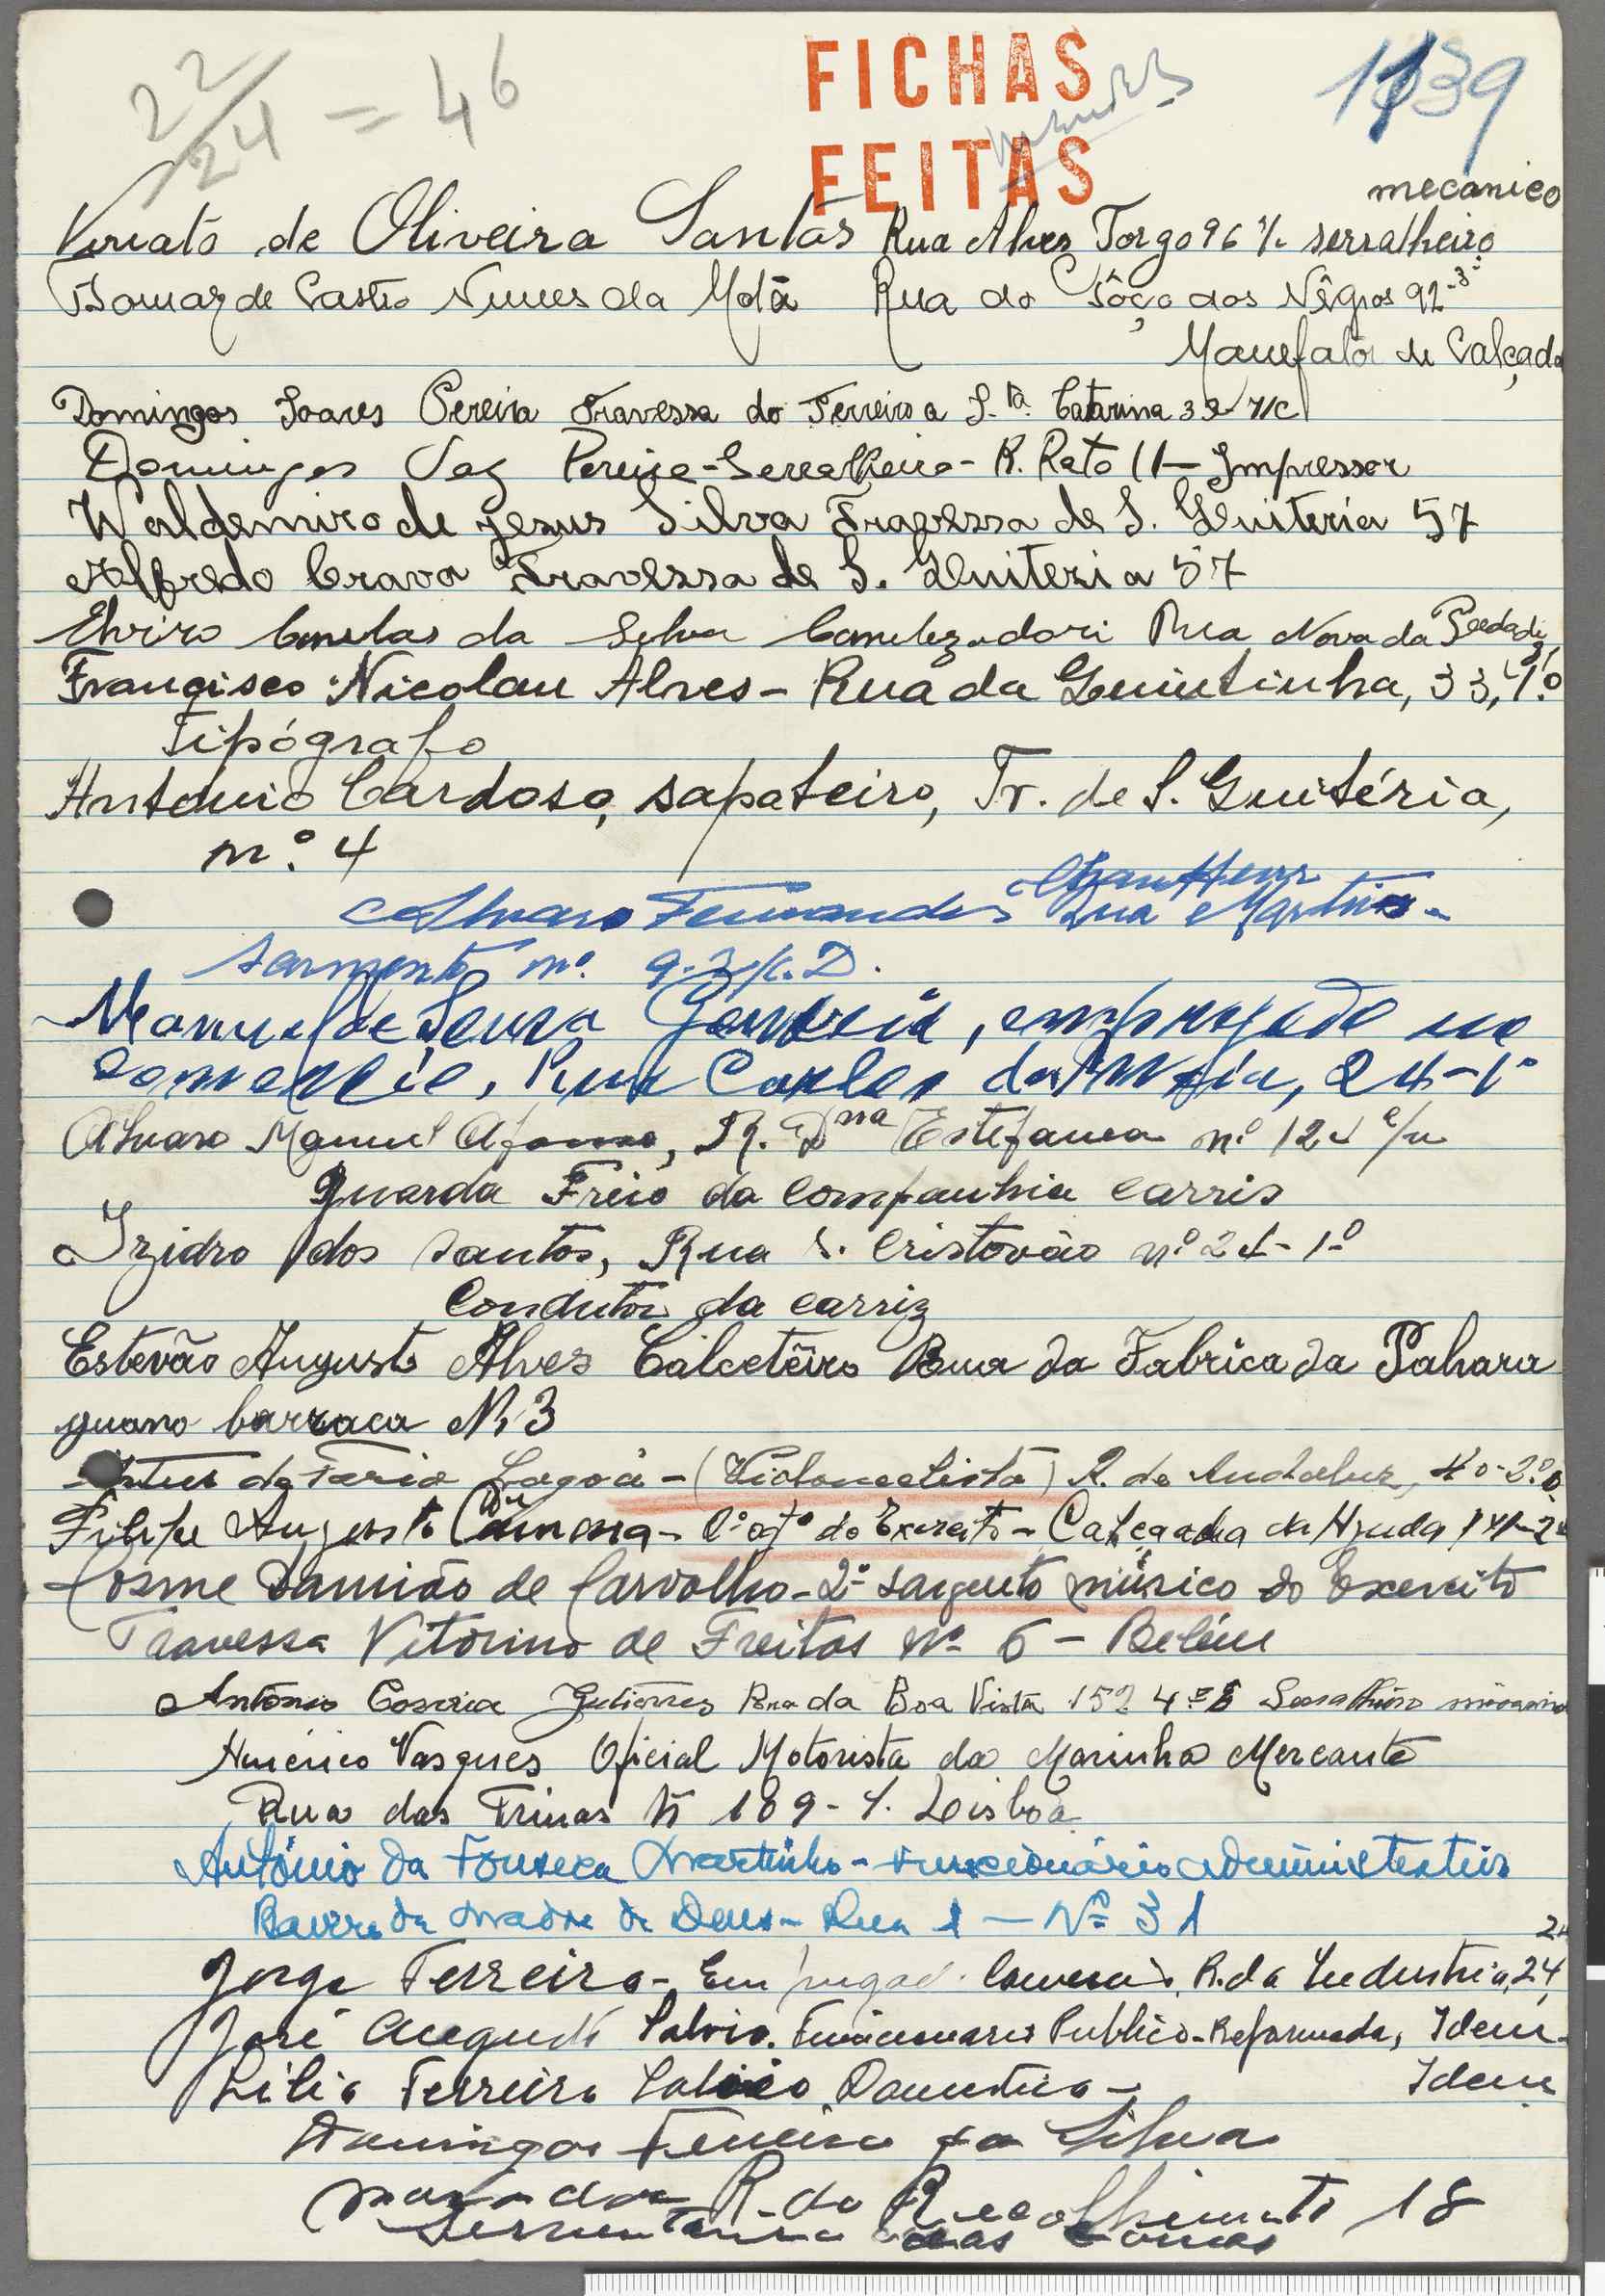 22/24 = 46
FICHAS
FEITAS
1139
mecanico
Viriato de Oliveira Santos Rua Alves Torgo 96 r/c serralheiro
Tomaz de Castro Nunes da Mota Rua do Poço dos Nêgros 92-3º
Manefator de Calçado
Domingos Soares Pereira Travessa do Terreiro a S.ta Catarina 32 r/c
Domingos Vaz Pereira - Serralheiro - R. Rato 11 - Impressor
Waldemiro de jesus Silva Travessa de S. Quiteria 57
Alfredo Cravo Travessa de S. Quiteria 57
da Silva Canalizador Rua Nova da Piedade
Francisco Nicolau Alves - Rua da Quintinha, 33, 1.º
Tipógrafo
Antonio Cardoso, sapateiro, Tr. de S. Quitéria,
n.º 4
Chauffeur
Alvaro Fernandes Rua Martins
Sarmento nº 9. r/c. D.
Manuel de Sousa Gouveia, empregado no
comercio, Rua Carlos da Maia, 24-1º
Alvaro Manuel Afonso, R. Dna Estefanea nº 124 c/v
Guarda Freio da companhia carris
Izidro dos Santos, Rua S. Cristovão nº 24-1º
Condutor da carriz
Estevão Augusto Alves Calcetêiro Rua da Fabrica da Palhara
guano barraca N. 3
de Faria Lagoa - (Violoncelista) R. de Andaluz, 40-2º
Filipe Augusto - 1º sgtº do Exercito - Calçada da Ajuda 141-2º
Cosme Damião de Carvalho - 2º sargento músico do Exercito
Travessa Vitorino de Freitas Nº 6 - Belém
António Correia Gutierres Rua da Boa Vista 152 4º E Serralheiro
Américo Vasques Oficial Motorista da Marinha Mercante
Rua das Trinas Nº 109-1. Lisboa
António da Fonseca Martinho - funcionário administrativo
Bairro da Madre de Deus - Rua 1 - Nº 31
Jorge Ferreira - Empregad. Comercio, R. da Industria, 24, 2º
José Augusto Salvio. Funcionario Publico - Reformado, Idem
Lilia Ferreira Salvio Domestica - Idem
Domingos Ferreira da Silva
morador R. do Recolhimento 18